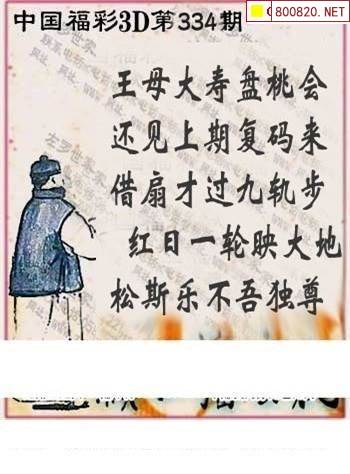 800820.NET
中国福彩3D第334期
王母大寿盘桃会
还见上期复码来
借扇才过九轨步
红日一轮映大地
松斯乐不吾独尊